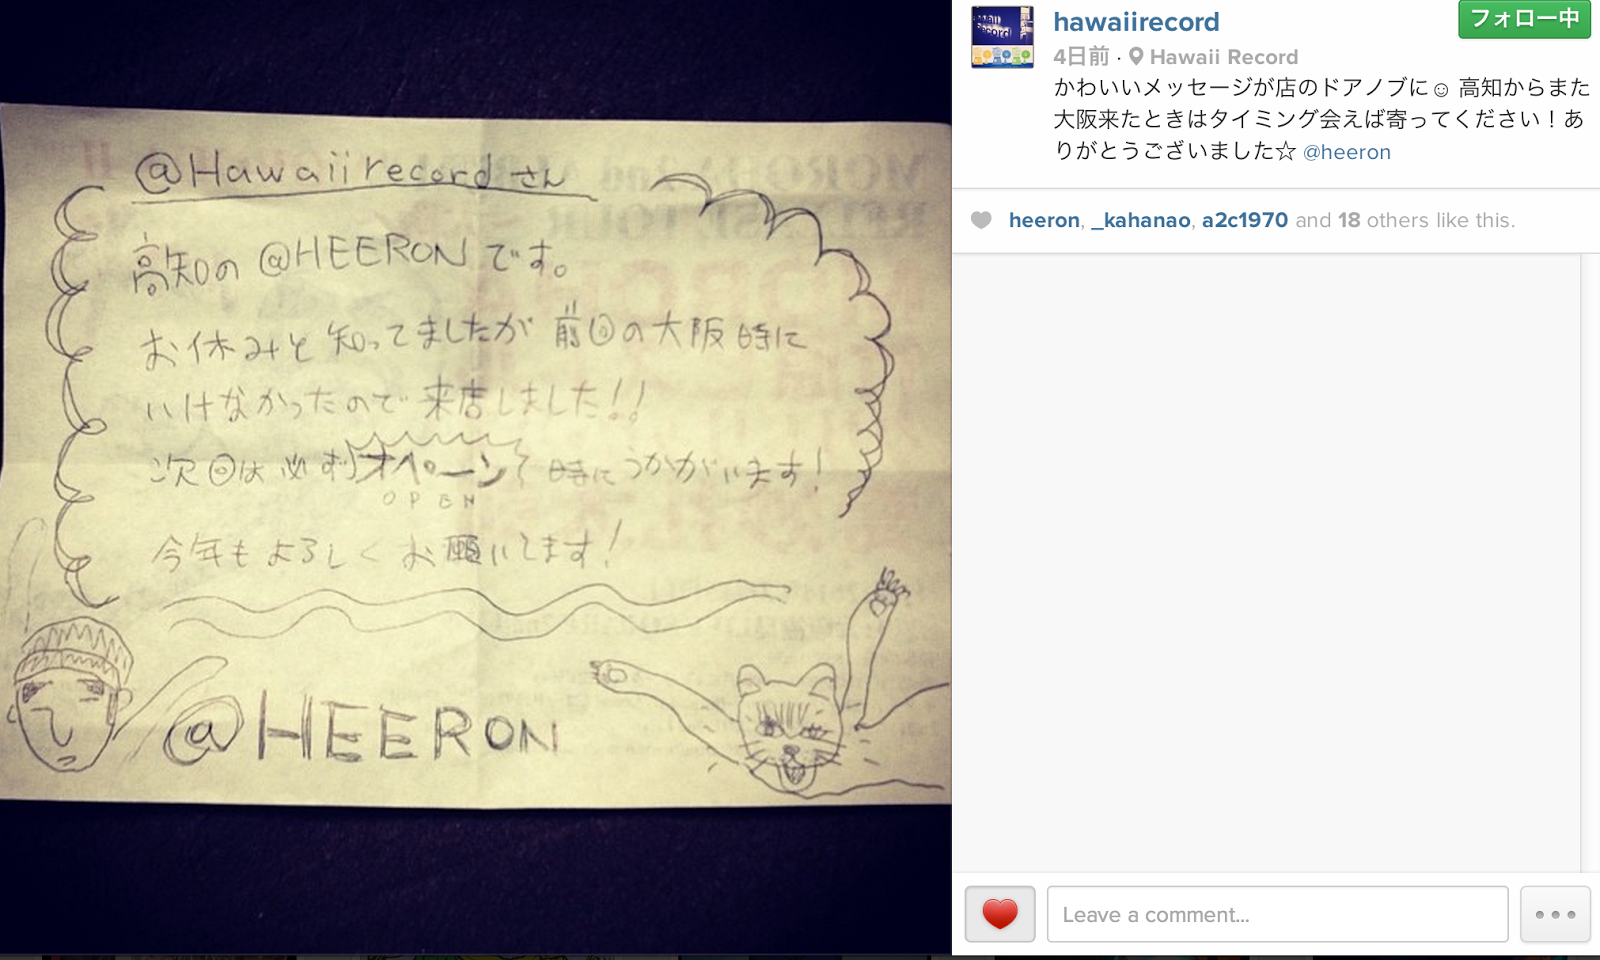 @Hawaiirecordさん
高知の @HEERON です。
お休みと知ってましたが 前回の大阪時に
いけなかったので 来店しました!!
次回は必ずオペーン時にうかがいます!
OPEN
今年もよろしく お願いします!
@HEERON
hawaiirecord
フォロー中
4日前 · Hawaii Record
かわいいメッセージが店のドアノブに☺ 高知からまた
大阪来たときはタイミング会えば寄ってください！あ
りがとうございました☆ @heeron
heeron, _kahanao, a2c1970 and 18 others like this.
Leave a comment...